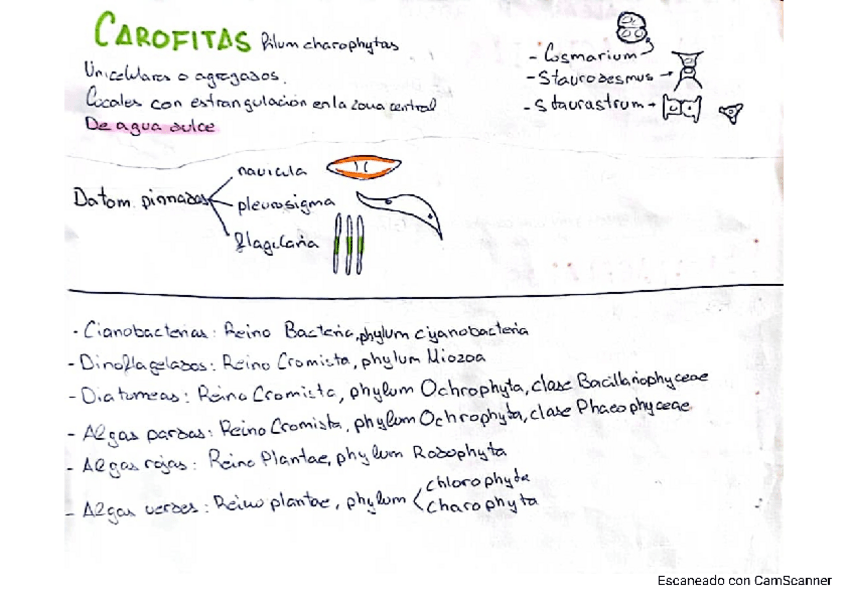 CAROFITAS Filum charophytas
Unicelulares o agregados.
Cocales con estrangulación en la zona central
De agua dulce
- Cosmarium
- Staurodesmus →
- Staurastrum →
Datom. pinnadas
navicula
pleurosigma
flagilaria
- Cianobacterias: Reino Bacteria, phylum cyanobacteria
- Dinoflagelados: Reino Cromista, phylum Miozoa
- Diatomeas: Reino Cromista, phylum Ochrophyta, clase Bacillariophyceae
- Algas pardas: Reino Cromista, phylum Ochrophyta, clase Phaeophyceae
- Algas rojas: Reino Plantae, phylum Rodophyta
- Algas verdes: Reino plantae, phylum < chlorophyta
charophyta
Escaneado con CamScanner